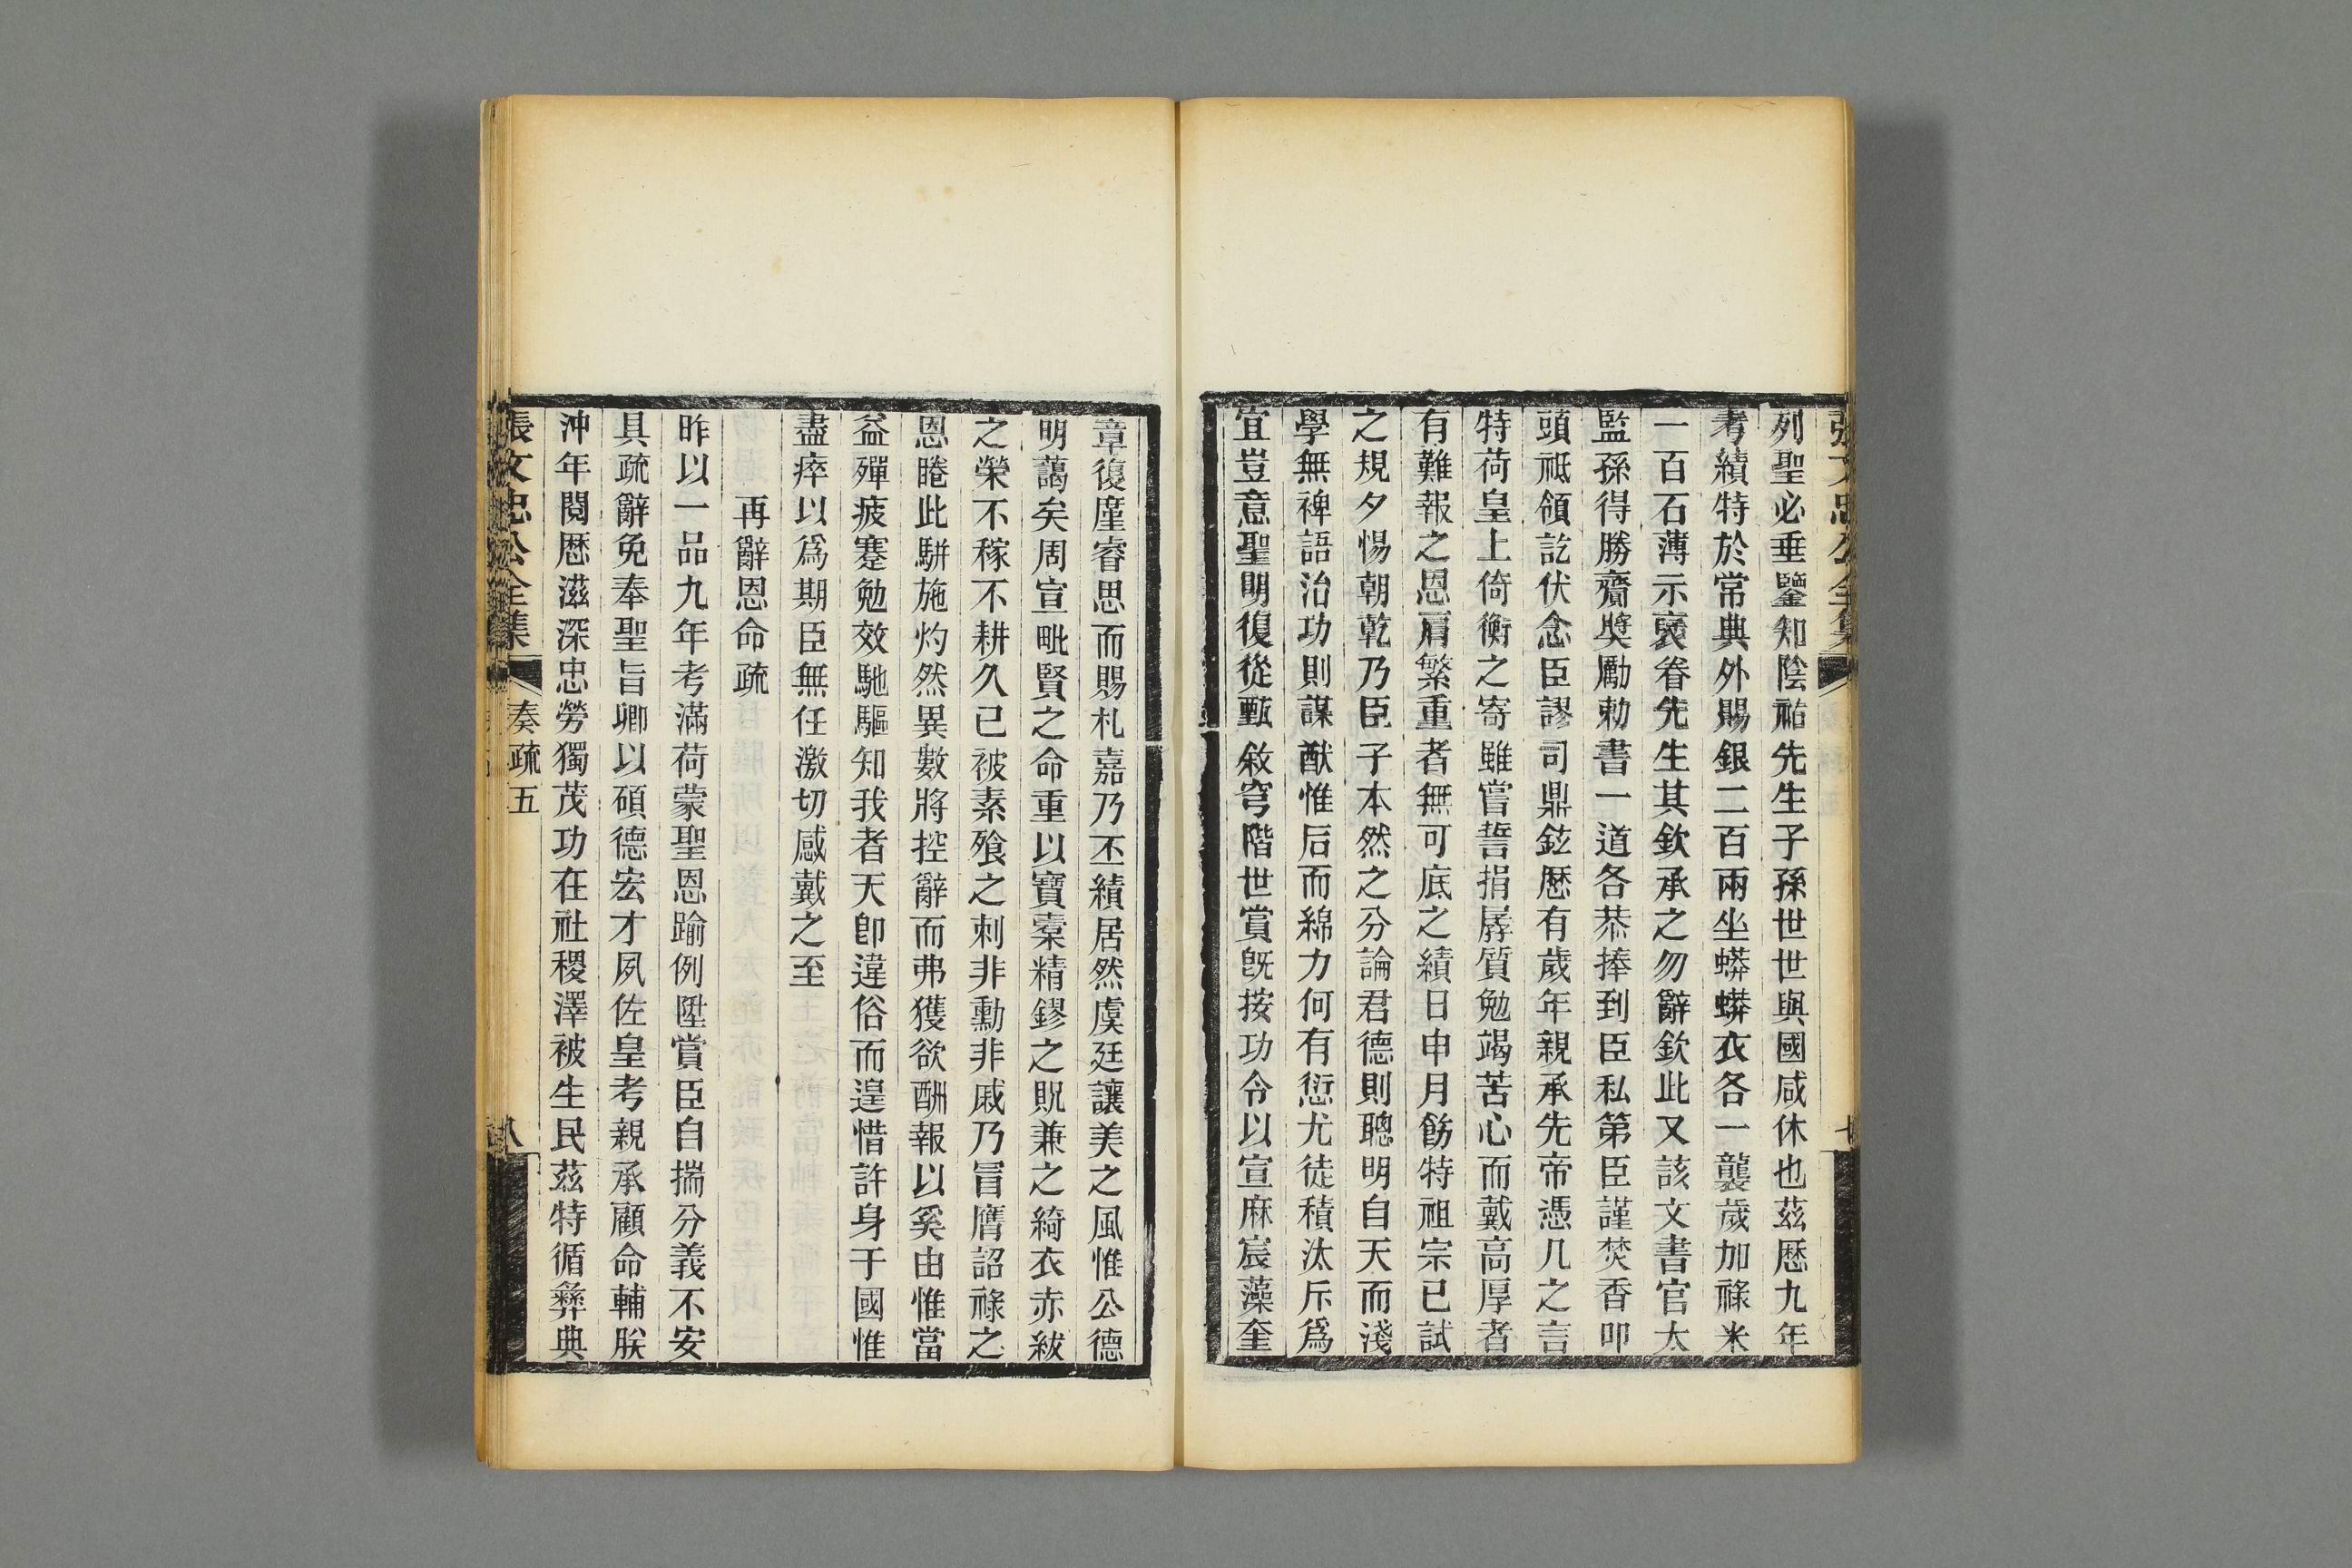 張文忠公全集
七
列聖必垂鑒知陰祐先生子孫世世與國咸休也茲歷九年
考績特於常典外賜銀二百兩坐蟒蟒衣各一襲歲加祿米
一百石薄示褒眷先生其欽承之勿辭欽此又該文書官太
監孫得勝齎奬勵勅書一道各恭捧到臣私第臣謹焚香叩
頭祗領訖伏念臣謬司鼎鉉歷有歲年親承先帝憑几之言
特荷皇上倚衡之寄雖嘗誓捐孱質勉竭苦心而戴高厚者
有難報之恩肩繁重者無可底之績日申月飭特祖宗已試
之規夕惕朝乾乃臣子本然之分論君德則聰明自天而淺
學無裨語治功則謀猷惟后而綿力何有愆尤徒積汰斥爲
宜豈意聖明復從甄敘穹階世賞旣按功令以宣麻宸藻奎
章復廑睿思而賜札嘉乃丕績居然虞廷讓美之風惟公德
明藹矣周宣毗賢之命重以寶槖精鏐之貺兼之綺衣赤紱
之榮不稼不耕久已被素飱之刺非勳非戚乃冒膺詔祿之
恩睠此駢施灼然異數將控辭而弗獲欲酬報以奚由惟當
益殫疲蹇勉效馳驅知我者天卽違俗而遑惜許身于國惟
盡瘁以爲期臣無任激切感戴之至
再辭恩命疏
昨以一品九年考滿荷蒙聖恩踰例陞賞臣自揣分義不安
具疏辭免奉聖旨卿以碩德宏才夙佐皇考親承顧命輔朕
沖年閱歷滋深忠勞獨茂功在社稷澤被生民茲特循彝典
張文忠公全集
奏疏五
八